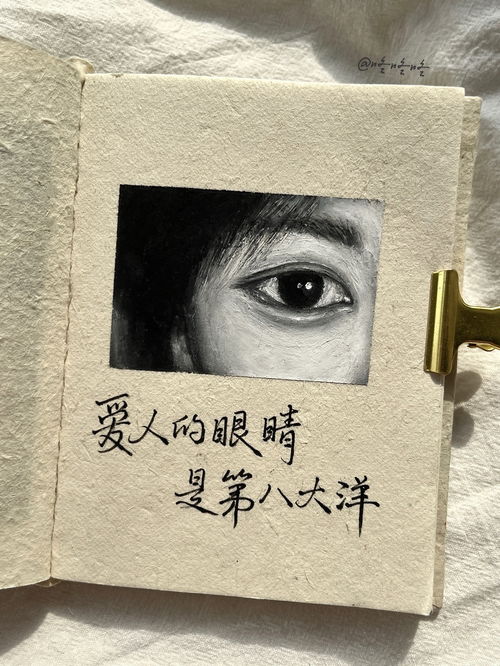 爱人的眼睛
是第八大洋